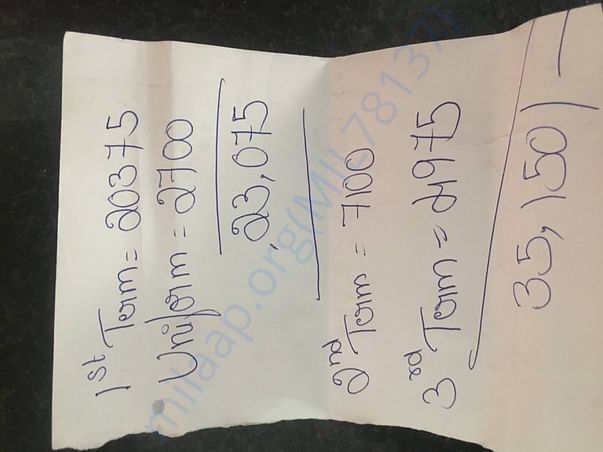 1st Term = 20375
Uniform = 2700
23,075
2nd Term = 7100
3rd Term = 4975
35,150/-
milaap.org(MIL78137)